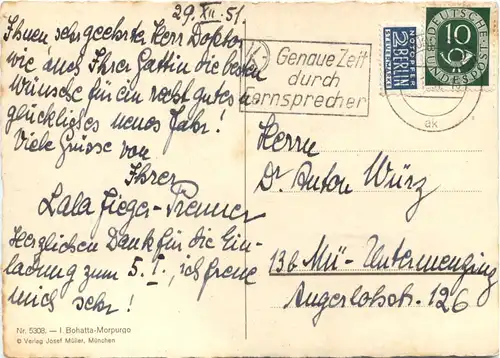 29. XII. 51.
Ihnen sehr geehrter Herr Doktor
wie auch Ihrer Gattin die besten
Wünsche für ein recht gutes u
glückliches neues Jahr!
Viele Grüsse von
Ihrer
Lala
Herzlichen Dank für die Ein-
ladung zum 5. I., ich freue
mich sehr!
Nr. 5308. — I. Bohatta-Morpurgo
© Verlag Josef Müller, München
Genaue Zeit
durch
Fernsprecher
NOTOPFER
2 BERLIN
STEUERMARKE
DEUTSCHE
BUNDESPOST
10
Herrn
Dr. Anton Würz
13b Mü-Untermenzing
Angerlohstr. 126